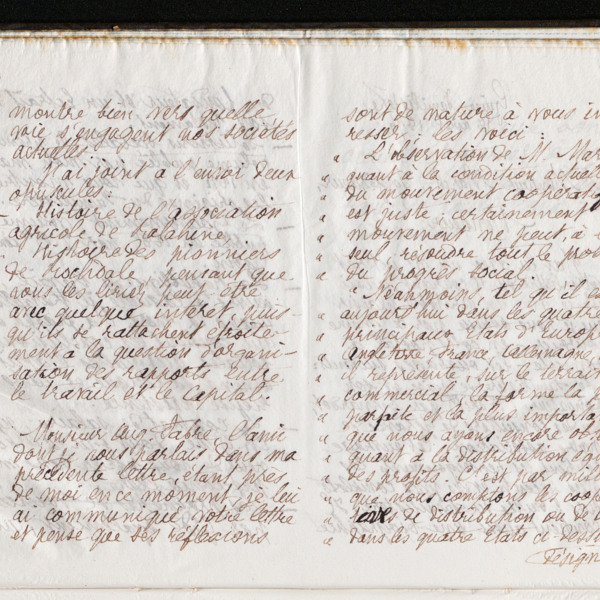 montre bien vers quelle
voie s'engagent nos sociétés
actuelles.
J'ai joint à l'envoi deux
opuscules:
Histoire de l'association
agricole de Ralahine
Histoire des pionniers
de Rochdale pensant que
vous les liriez peut être
avec quelque intérêt, puis-
qu'ils se rattachent étroite-
ment à la question d'organi-
sation des rapports entre
le travail et le capital.
Monsieur Aug. Fabre, l'ami
dont je vous parlais dans ma
précédente lettre, étant près
de moi en ce moment, je lui
ai communiqué votre lettre
et pense que ses réflexions
sont de nature à vous in
resser, les voici :
" L'observation de M. Mar
" quant à la condition actuel
" du mouvement coopérat
" est juste; certainement
" mouvement ne peut, à
" seul, résoudre tout le pro
" du progrès social.
" Néanmoins, tel qu'il es
" aujourd'hui dans les quatre
" principaux Etats d'Europ
" Angleterre France
" il représente, sur le terrai
" commercial, la forme la p
" parfaite et la plus importa
" que nous ayons encore ob
" quant à la distribution
" des profits. C'est par mill
" que nous comptons les coop
" tives de distribution ou de
" dans les quatre Etats ci-dess
Désign